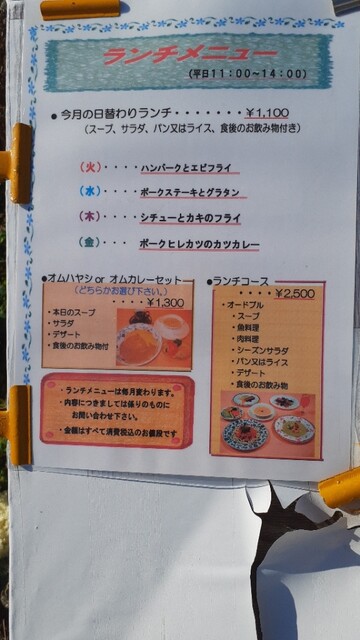 ランチメニュー
(平日11:00~14:00)
● 今月の日替わりランチ・・・・・・・¥1,100
(スープ、サラダ、パン又はライス、食後のお飲み物付き)
(火)・・・・ハンバークとエビフライ
(水)・・・・ポークステーキとグラタン
(木)・・・・シチューとカキのフライ
(金)・・・ ポークヒレカツのカツカレー
●オムハヤシor オムカレーセット
(どちらかお選び下さい。)
・・・・¥1,300
・本日のスープ
・サラダ
・デザート
・食後のお飲み物付
●ランチコース
・・・・¥2,500
・オードブル
・スープ
・魚料理
・肉料理
・シーズンサラダ
・パン又はライス
・デザート
・食後のお飲み物
・ランチメニューは毎月変わります。
・内容につきましては係りのものに
お問い合わせ下さい。
・金額はすべて消費税込のお値段です